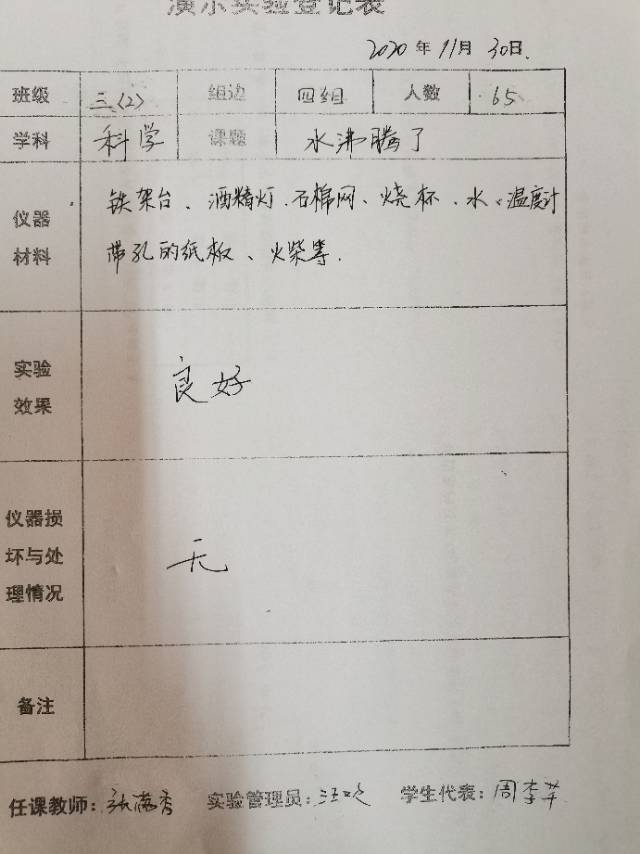 演示实验登记表
2020年11月30日.
班级 三(2) 组边 四组 人数 65
学科 科学 课题 水沸腾了
仪器材料 铁架台、酒精灯、石棉网、烧杯、水、温度计
带孔的纸板、火柴等.
实验
效果
良好
仪器损
坏与处
理情况
无
备注
任课教师: 张 秀 实验管理员: 汪 学生代表: 周李芊